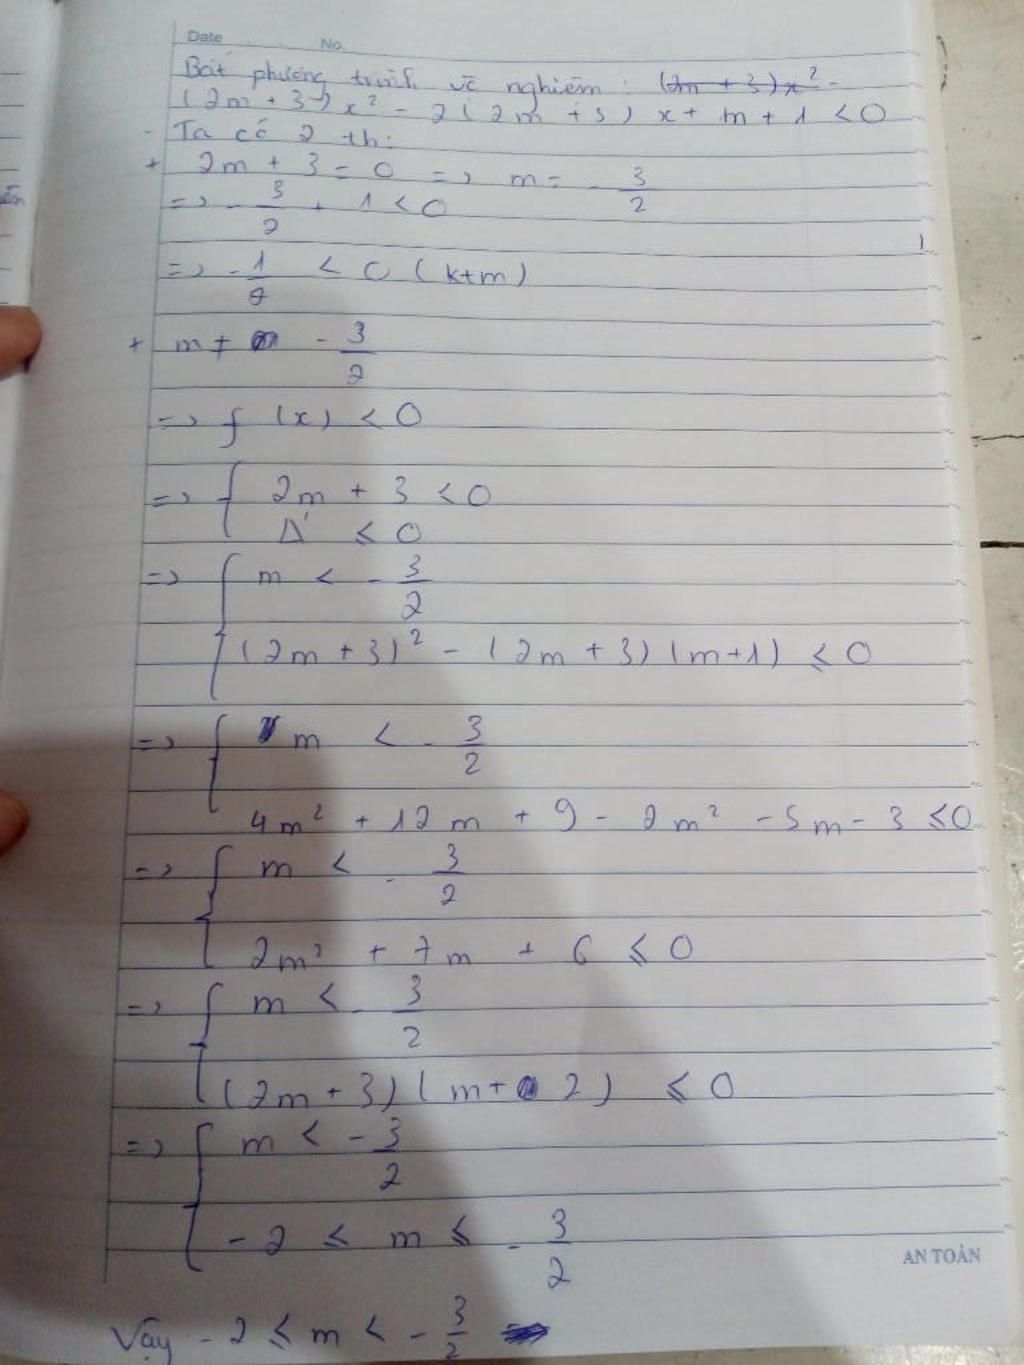 Date No.
Bất phương trình vô nghiệm : (2m + 3)x² -
(2m + 3) x² - 2 (2m + 3) x + m + 1 < 0
- Ta có 2 th:
+ 2m + 3 = 0 => m = - 3/2
=> - 3/2 + 1 < 0
=> - 1/2 < 0 (k+m)
+ m ≠ - 3/2
=> f (x) < 0
=> { 2m + 3 < 0
Δ' ≤ 0
=> { m < - 3/2
(2m + 3)² - (2m + 3) (m+1) ≤ 0
=> { m < - 3/2
4m² + 12m + 9 - 2m² - 5m - 3 ≤0
=> { m < - 3/2
2m² + 7m + 6 ≤ 0
=> { m < - 3/2
(2m + 3) (m + 2) ≤ 0
=> { m < - 3/2
- 2 ≤ m ≤ - 3/2
AN TOÀN
Vậy - 2 ≤ m < - 3/2